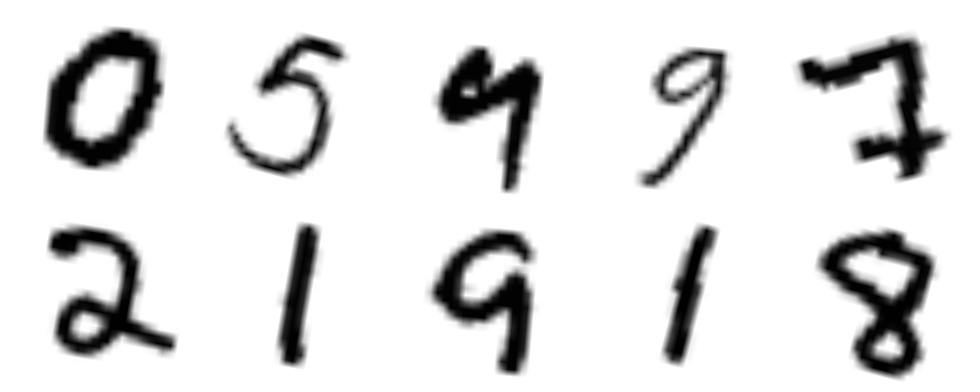 0 5 9 9 7
2 1 9 1 8